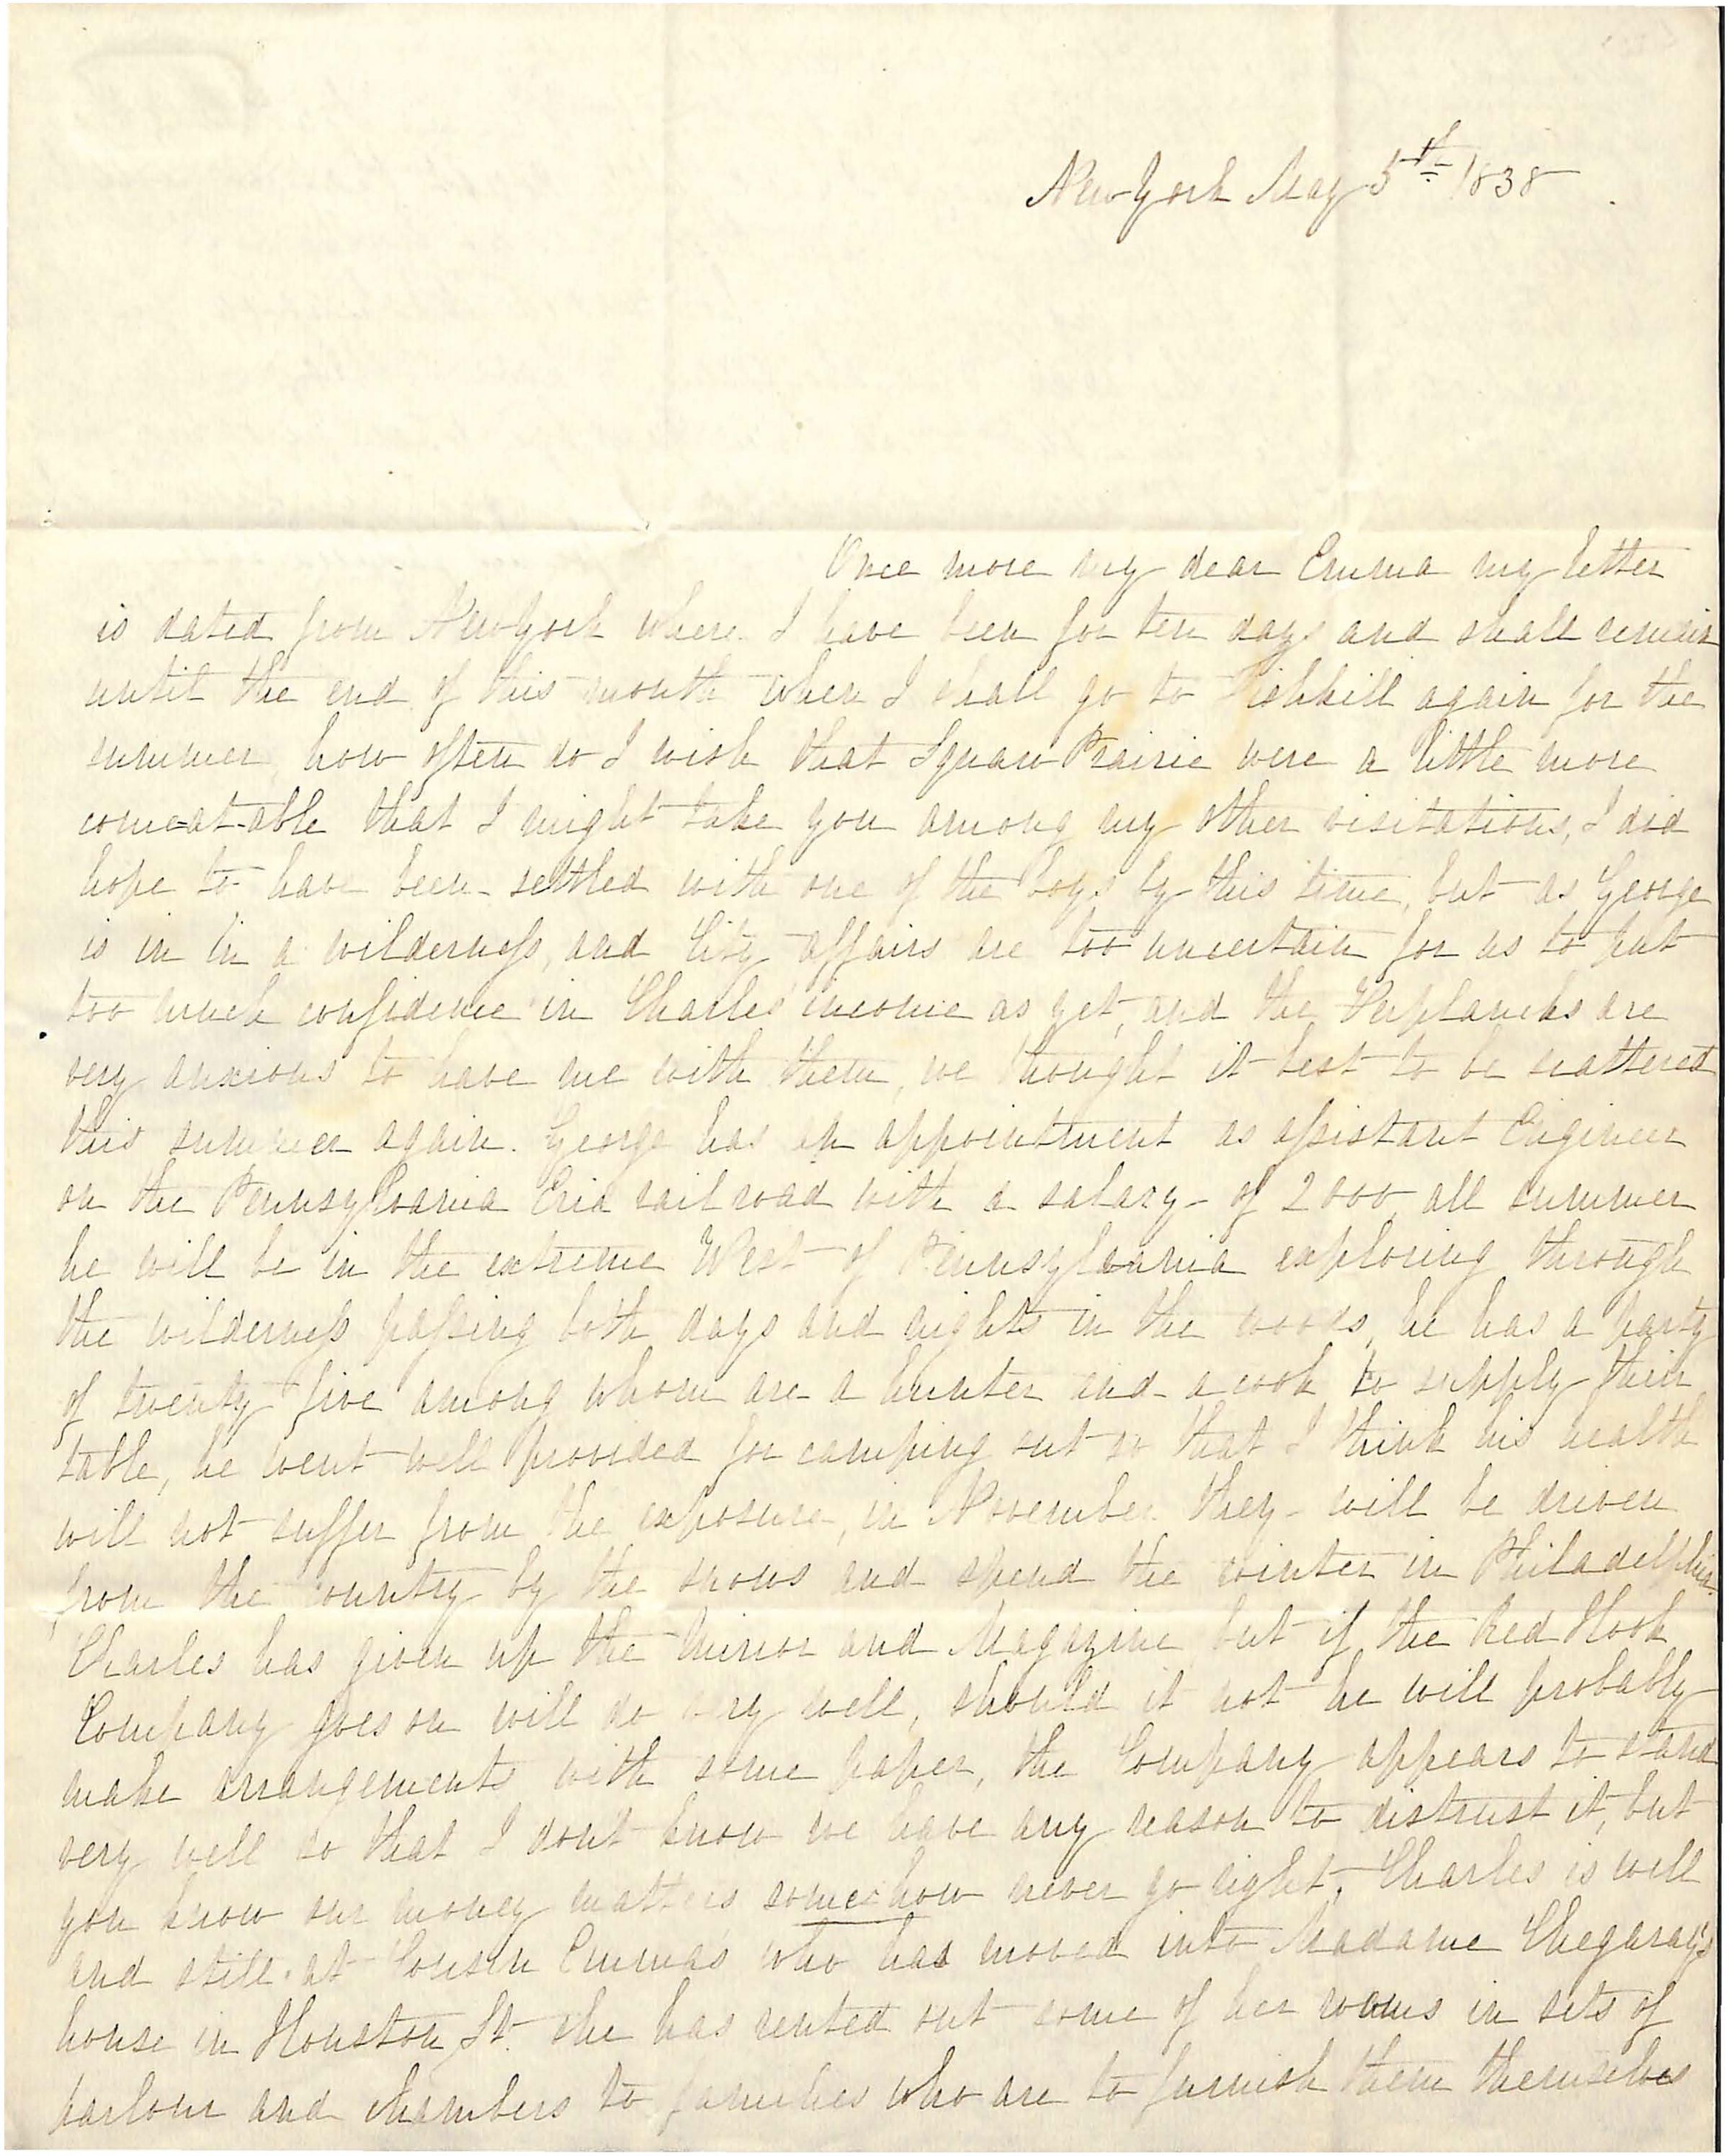 New York May 5th 1838
Once more my dear Emma my letter
is dated from New York where I have been for ten days and shall remain
until the end of this month when I shall go to Fishkill again for the
summer, how often do I wish that Squaw Prairie were a little more
come-at-able that I might take you among my other visitations, I did
hope to have been settled with one of the boys by this time, but as George
is in in a wilderness, and City affairs are too uncertain for us to put
too much confidence in Charles' income as yet, and the Verplancks are
very anxious to have me with them, we thought it best to be scattered
this summer again. George has an appointment as assistant Engineer
on the Pennsylvania Erie rail road with a salary of 2000, all summer
he will be in the extreme West of Pennsylvania exploring through
the wilderness passing both days and nights in the woods, he has a party
of twenty five among whom are a hunter and a cook to supply their
table, he went well provided for camping out so that I think his health
will not suffer from the exposure, in November they will be driven
from the country by the snows and spend the winter in Philadelphia.
Charles has given up the Mirror and Magazine but if the Red Hook
Company goes on will do very well, should it not he will probably
make arrangements with some paper, the Company appears to stand
very well so that I don't know we have any reason to distrust it, but
you know our money matters somehow never go right, Charles is well
and still at Cousin Emma's who has moved into Madame Chegaray's
house in Houston St. she has rented out some of her rooms in sets of
parlour and chambers to families who are to furnish them themselves